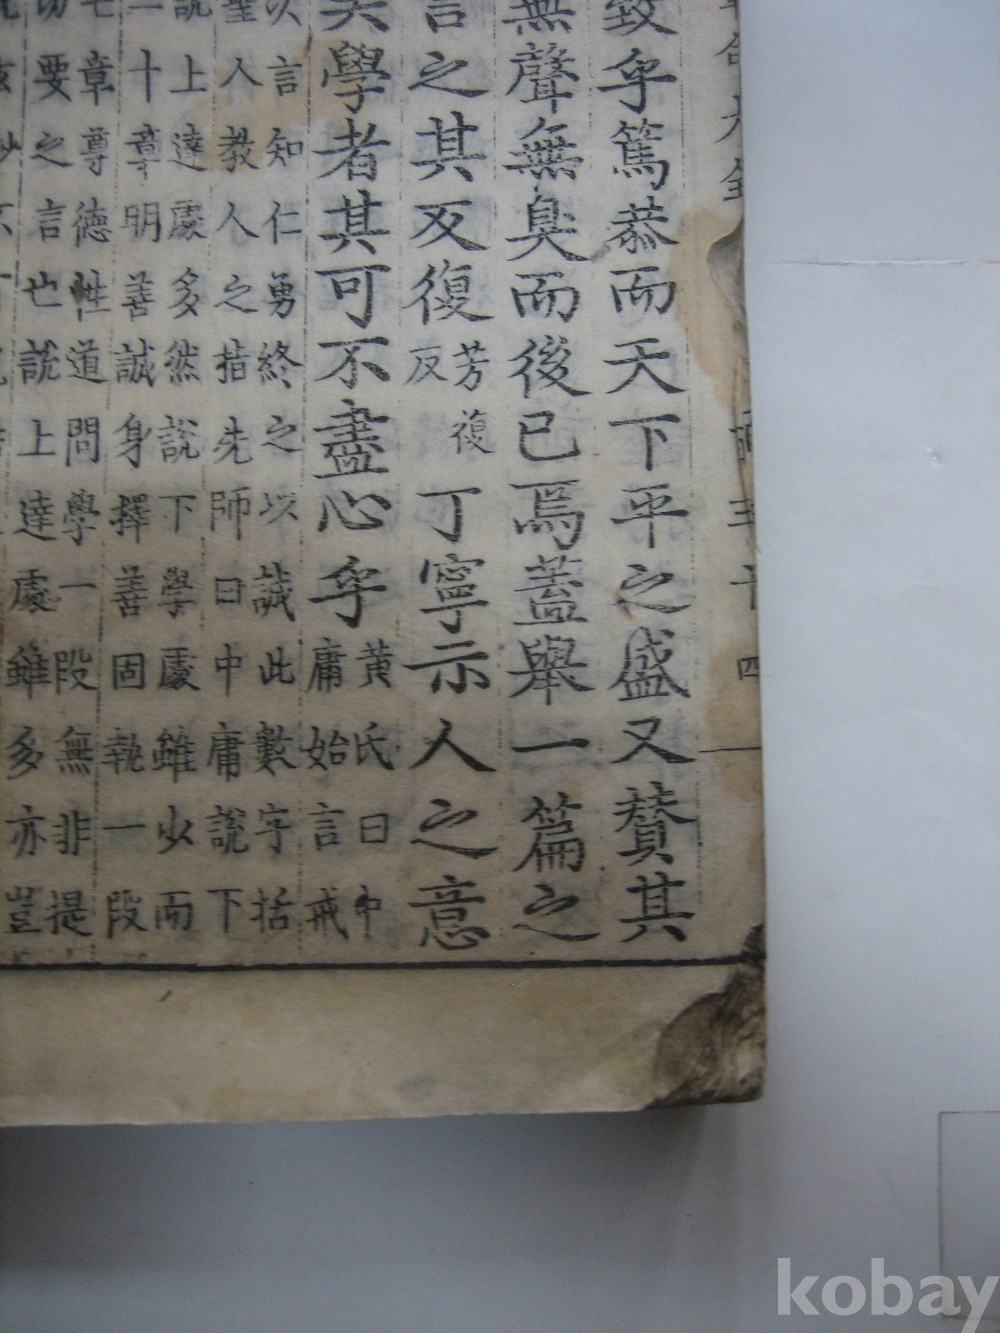 致乎篤恭而天下平之盛又贊其
無聲無臭而後已焉蓋舉一篇之
言之其反復芳復反丁寧示人之意
矣學者其可不盡心乎黃氏曰中
庸始言戒
次言知仁勇終之以誠此數字括
聖人教人之指先師曰中庸說下
說上達處多然說下學處雖少而
二十章明善誠身擇善固執一段
七章尊德性道問學一段無非提
切要之言也說上達處雖多亦豈
四
kobay